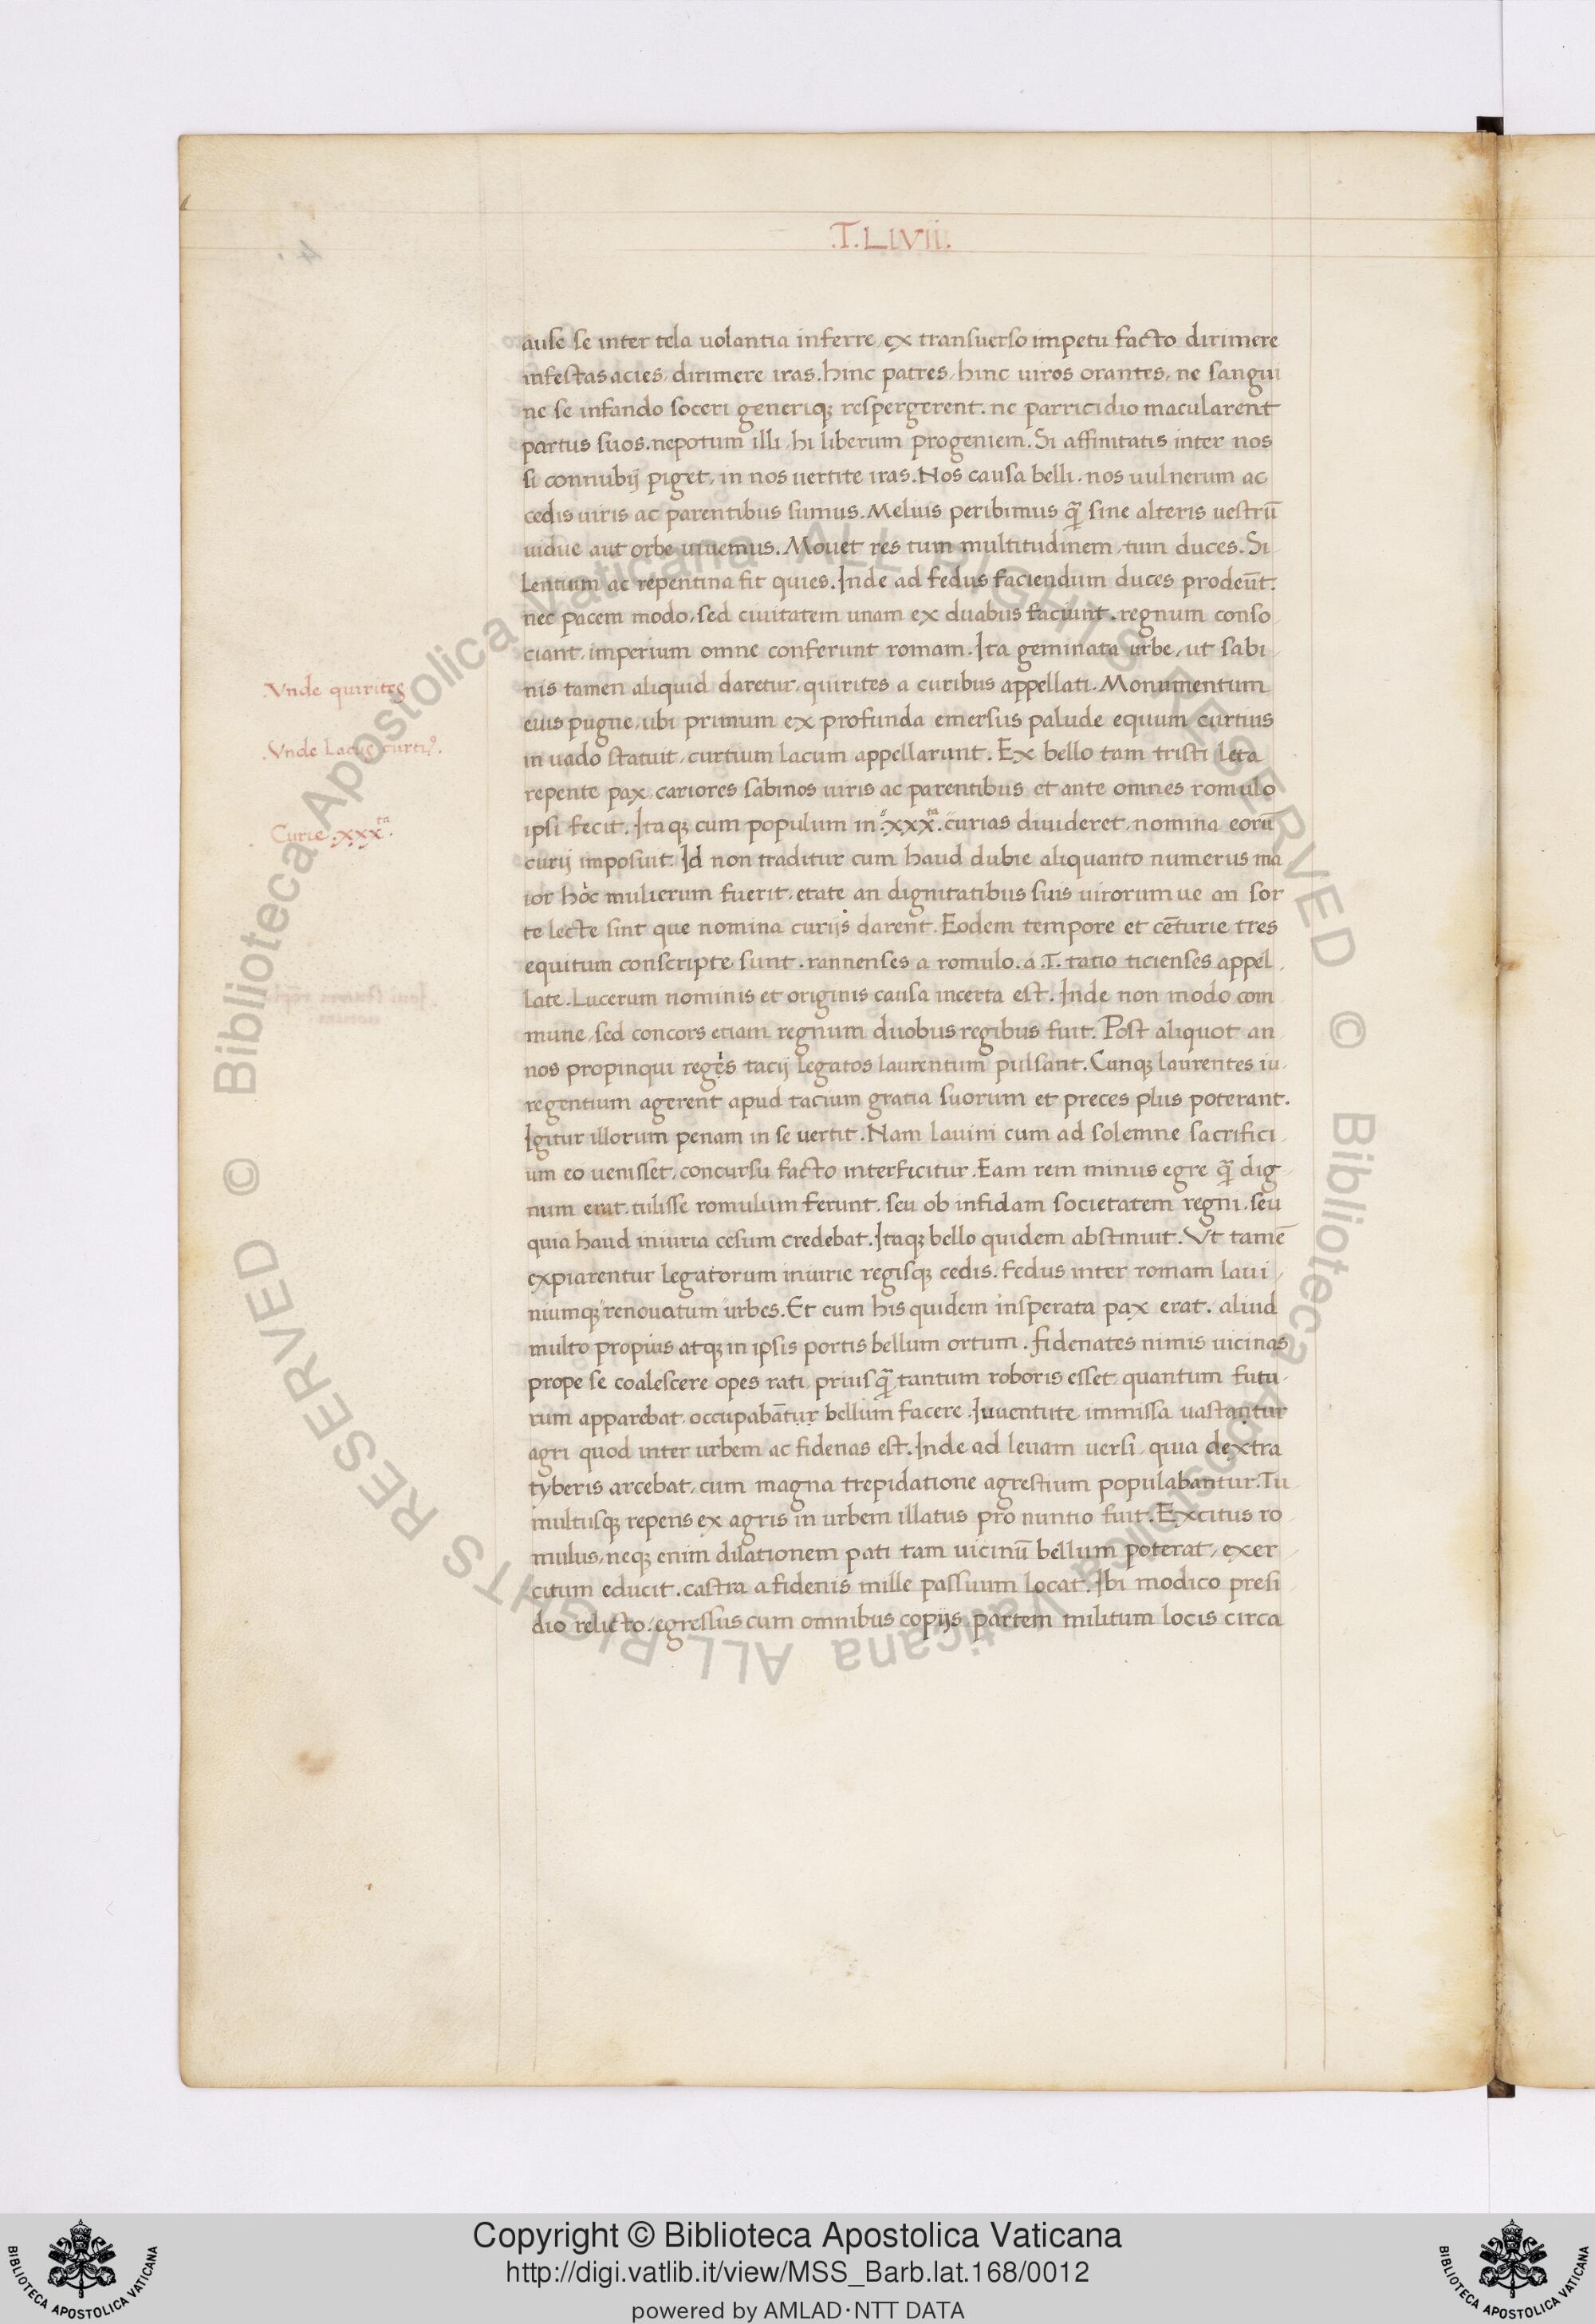 .T.LIVII.
ause se inter tela uolantia inferre, ex transuerso impetu facto dirimere
infestas acies, dirimere iras. hinc patres, hinc uiros orantes, ne sangui
ne se infando soceri generiqꝫ respergerent. ne parricidio macularent
partus suos. nepotum illi, hi liberum progeniem. Si affinitatis inter nos
si connubij piget, in nos uertite iras. Nos causa belli, nos uulnerum ac
cedis uiris ac parentibus sumus. Melius peribimus q̃ sine alteris uestrū
uidue aut orbe uiuemus. Mouet res tum multitudinem, tum duces. Si
lentium ac repentina fit quies. Inde ad fedus faciendum duces prodeūt.
nec pacem modo, sed ciuitatem unam ex duabus faciunt. regnum conso
ciant, imperium omne conferunt romam. Ita geminata urbe, ut sabi
.Vnde quirites
nis tamen aliquid daretur, quirites a curibus appellati. Monumentum
eius pugne, ubi primum ex profunda emersus palude equum curtius
.Vnde Lacus curtiꝰ.
in uado statuit, curtium lacum appellarunt. Ex bello tam tristi leta
repente pax, cariores sabinos uiris ac parentibus et ante omnes romulo
Curie .xxxta.
ipsi fecit. Itaqꝫ cum populum in .xxxta. curias diuideret, nomina eorū
curij imposuit. Id non traditur cum haud dubie aliquanto numerus ma
ior hoc mulierum fuerit, etate an dignitatibus suis uirorum ue an sor
te lecte sint que nomina curijs darent. Eodem tempore et cēturie tres
equitum conscripte sunt. rannenses a romulo. a .T. tatio ticienses appel
late. Lucerum nominis et originis causa incerta est. Inde non modo com
mune, sed concors etiam regnum duobus regibus fuit. Post aliquot an
nos propinqui regẹis tacij legatos laurentum pulsant. Cunqꝫ laurentes iu
regentium agerent apud tacium gratia suorum et preces plus poterant.
Igitur illorum penam in se uertit. Nam lauini cum ad solemne sacrifici
um eo uenisset, concursu facto interficitur. Eam rem minus egre q̃ dig
num erat tulisse romulum ferunt. seu ob infidam societatem regni, seu
quia haud iniuria cesum credebat. Itaqꝫ bello quidem abstinuit. Vt tamē
expiarentur legatorum iniurie regisqꝫ cedis. fedus inter romam laui
niumqꝫ renouatum urbes. Et cum his quidem insperata pax erat. aliud
multo propius atqꝫ in ipsis portis bellum ortum. fidenates nimis uicinas
prope se coalescere opes rati, priusq̃ tantum roboris esset, quantum futu
rum apparebat occupabāṭụṛ bellum facere. Iuuentute immissa uastaṇtur
agri quod inter urbem ac fidenas est. Inde ad leuam uersi, quia dextra
tyberis arcebat, cum magna trepidatione agrestium populabantur. Tu
multusqꝫ repens ex agris in urbem illatus pro nuntio fuit. Excitus ro
mulus, neqꝫ enim dilationem pati tam uicinū bellum poterat, exer
citum educit. castra a fidenis mille passuum locat. Ibi modico presi
dio relicto, egressus cum omnibus copijs, partem militum locis circa
© Biblioteca Apostolica Vaticana ALL RIGHTS RESERVED
© Biblioteca Apostolica Vaticana ALL RIGHTS RESERVED
Copyright © Biblioteca Apostolica Vaticana
http://digi.vatlib.it/view/MSS_Barb.lat.168/0012
powered by AMLAD·NTT DATA
BIBLIOTECA APOSTOLICA VATICANA
BIBLIOTECA APOSTOLICA VATICANA